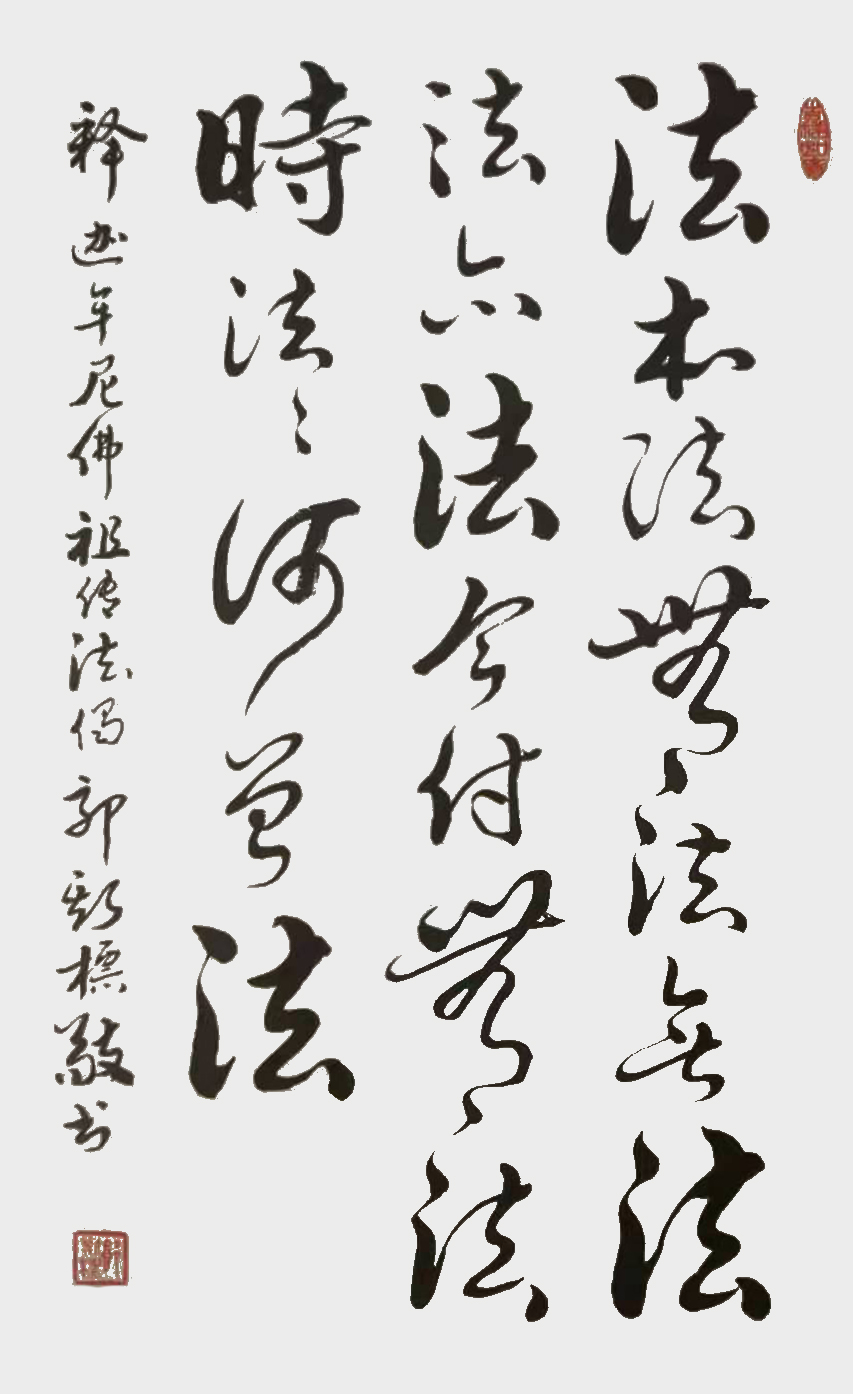 法本法無法無法
法亦法今付無法
時法々何曾法
释迦牟尼佛祖传法偈 郭標敬书